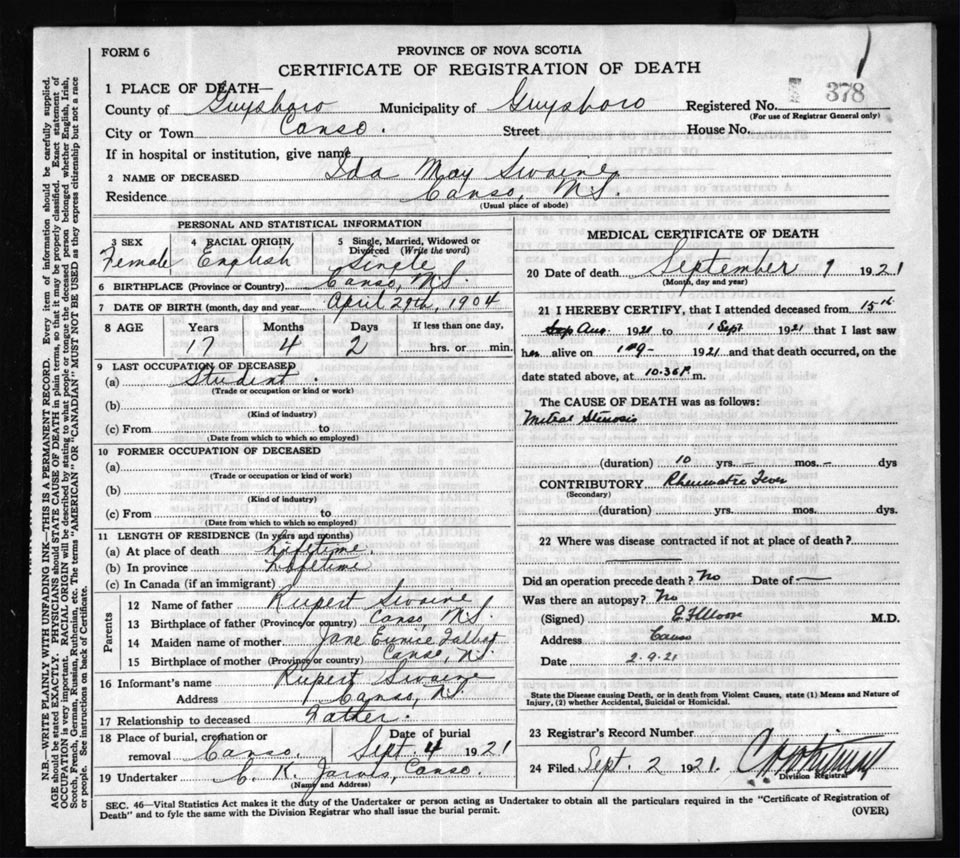 FORM 6
PROVINCE OF NOVA SCOTIA
CERTIFICATE OF REGISTRATION OF DEATH
1 PLACE OF DEATH—
County of Guysboro Municipality of Guysboro Registered No. 378
(For use of Registrar General only)
City or Town Canso. Street House No.
If in hospital or institution, give name
2 NAME OF DECEASED Ida May Swaine
Residence Canso, N.S.
(Usual place of abode)
PERSONAL AND STATISTICAL INFORMATION
3 SEX 4 RACIAL ORIGIN 5 Single, Married, Widowed or Divorced (Write the word)
Female English Single
6 BIRTHPLACE (Province or Country) Canso, N.S.
7 DATE OF BIRTH (month, day and year) April 29th, 1904
8 AGE Years Months Days If less than one day,
17 4 2 hrs. or min.
9 LAST OCCUPATION OF DECEASED
(a) Student.
(Trade or occupation or kind or work)
(b)
(Kind of industry)
(c) From to
(Date from which to which so employed)
10 FORMER OCCUPATION OF DECEASED
(a)
(Trade or occupation or kind of work)
(b)
(Kind of industry)
(c) From to
(Date from which to which so employed)
11 LENGTH OF RESIDENCE (In years and months)
(a) At place of death Lifetime.
(b) In province Lifetime
(c) In Canada (if an immigrant)
Parents
12 Name of father Rupert Swaine
13 Birthplace of father (Province or country) Canso, N.S.
14 Maiden name of mother Jane Eunice Talbot
15 Birthplace of mother (Province or country) Canso, N.S.
16 Informant's name Rupert Swaine
Address Canso, N.S.
17 Relationship to deceased Father.
18 Place of burial, cremation or removal Canso. Date of burial Sept. 4 1921
19 Undertaker C. K. Jarvis, Canso.
(Name and Address)
MEDICAL CERTIFICATE OF DEATH
20 Date of death September 1 1921
(Month, day and year)
21 I HEREBY CERTIFY, that I attended deceased from 15th
Aug 1921 to 1 Sept 1921 that I last saw
her alive on 1-9- 1921 and that death occurred, on the
date stated above, at 10.36 P. m.
The CAUSE OF DEATH was as follows:
Mitral Stenosis
(duration) 10 yrs. — mos. — dys
CONTRIBUTORY Rheumatic Fever
(Secondary)
(duration) yrs. mos. dys
22 Where was disease contracted if not at place of death?
Did an operation precede death? No Date of —
Was there an autopsy? No
(Signed) M.D.
Address Canso
Date 2.9.21
State the Disease causing Death, or in death from Violent Causes, state (1) Means and Nature of
Injury, (2) whether Accidental, Suicidal or Homicidal.
23 Registrar's Record Number
24 Filed Sept. 2 1921.
Division Registrar
SEC. 46—Vital Statistics Act makes it the duty of the Undertaker or person acting as Undertaker to obtain all the particulars required in the "Certificate of Registration of
Death" and to fyle the same with the Division Registrar who shall issue the burial permit.
(OVER)
N.B.—WRITE PLAINLY WITH UNFADING INK—THIS IS A PERMANENT RECORD. Every item of information should be carefully supplied.
AGE should be stated EXACTLY. PHYSICIANS should STATE CAUSE OF DEATH in plain terms, so that it may be properly classified. Exact statement of
OCCUPATION is very important. RACIAL ORIGIN will be described by stating to what people or tongue the deceased person belonged whether English, Irish,
Scotch, French, German, Russian, Ruthenian, etc. The terms "AMERICAN" OR "CANADIAN" MUST NOT BE USED as they express citizenship but not a race
or people. See instructions on back of Certificate.